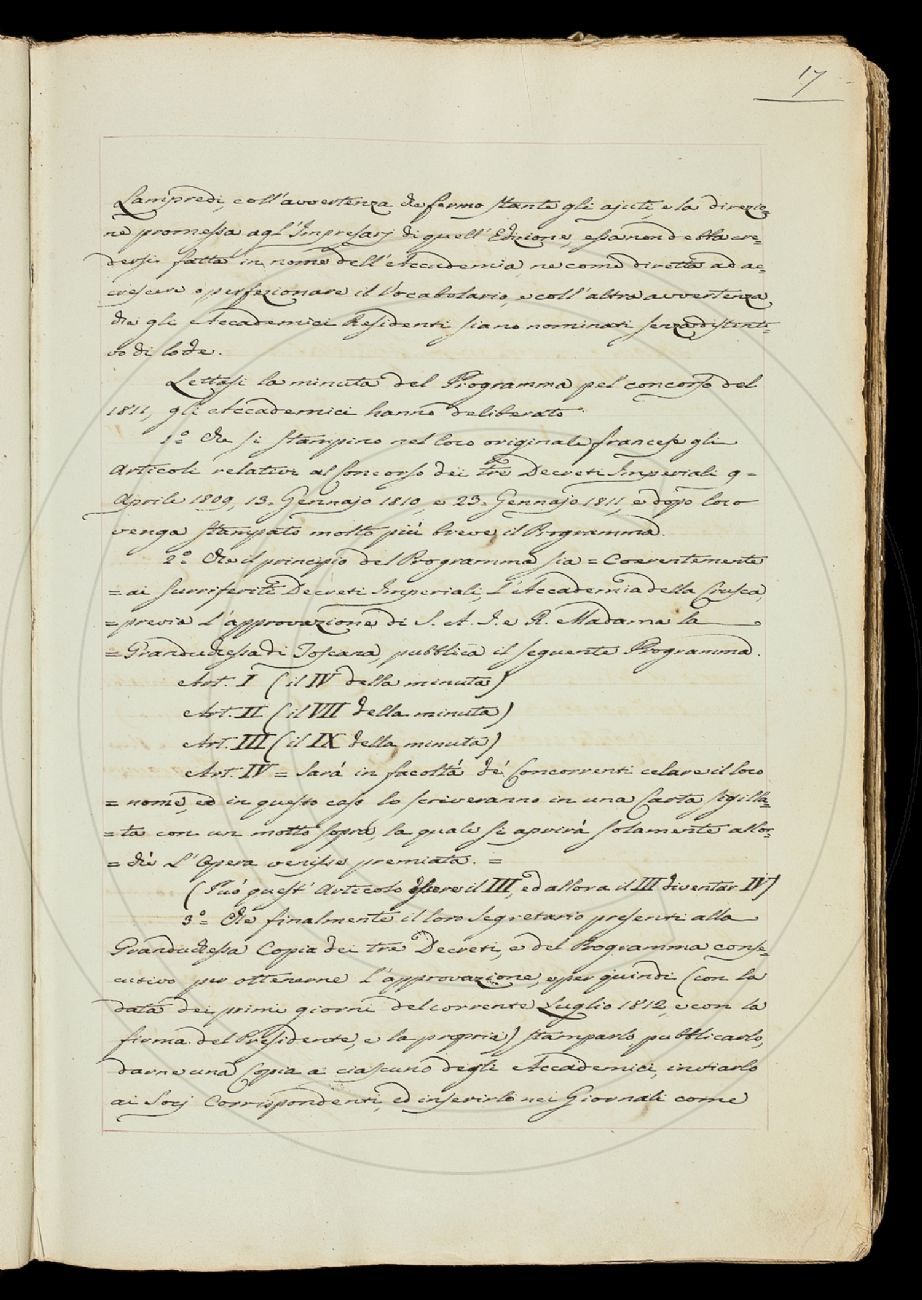 17
Lampredi, coll'avvertenza che fermo stante gli ajuti, e la direzio=
ne promessa agl'Impresarj di quell'Edizione, essa non debba cre=
dersi fatta in nome dell'Accademia ne come diretta ad ac=
crescere o perfezionare il Vocabolario, e coll'altra avvertenza
che gli Accademici Residenti siano nominati senza distinti=
vo di lode.
Lettasi la minuta del Programma pel concorso del
1811, gli Accademici hanno deliberato:
1.° Che si stampino nel loro originale francese gli
Articoli relativi al Concorso dei tre Decreti Imperiali 9=
Aprile 1809, 13. Gennajo 1810, e 23. Gennajo 1811, e dopo loro
venga stampato molto più breve il Programma.
2.° Che il principio del Programma sia = Coerentemente
= ai surriferiti Decreti Imperiali, L'Accademia della Crusca,
= previa L'approvazione di S. A. I. e R. Madama la
= Granduchessa di Toscana, pubblica il seguente Programma.
Art. I (il IV della minuta)
Art. II (il VII della minuta)
Art. III (il IX della minuta)
Art. IV = Sarà in facoltà de' Concorrenti celare il loro
= nome, ed in questo caso lo scriveranno in una Carta sigilla=
= ta con un motto sopra, la quale si aprirà solamente allor=
= chè L'Opera venisse premiata. =
(Può quest'Articolo essere il III, ed allora il III diventar IV)
3.° Che finalmente il loro Segretario presenti alla
Granduchessa Copia dei tre Decreti, e del Programma conse=
cutivo per ottenerne L'approvazione, e per quindi (con la
data dei primi giorni del corrente Luglio 1812, e con la
firma del Presidente, e la propria) stamparlo, pubblicarlo,
darne una Copia a ciascuno degli Accademici, inviarlo
ai Socj Corrispondenti, ed inserirlo nei Giornali come